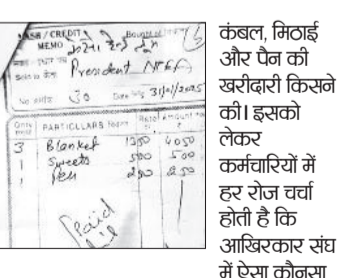 CASH / CREDIT
MEMO
President
No. 30 Date 31/01/2025
PARTICULARS Rate Amount
3 Blanket 1350 4050
1 Sweets 500 500
1 Pen 250 250
Paid
कंबल, मिठाई
और पैन की
खरीदारी किसने
की। इसको
लेकर
कर्मचारियों में
हर रोज चर्चा
होती है कि
आखिरकार संघ
में ऐसा कौनसा